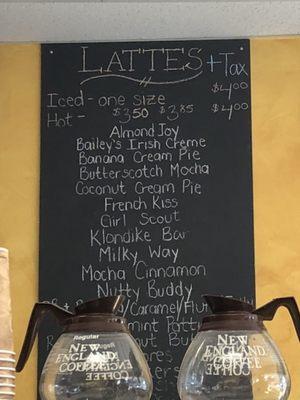 LATTES + Tax
Iced - one size $4.00
Hot - $3.50 $3.85 $4.00
Almond Joy
Bailey's Irish Creme
Banana Cream Pie
Butterscotch Mocha
Coconut Cream Pie
French Kiss
Girl Scout
Klondike Bar
Milky Way
Mocha Cinnamon
Nutty Buddy
/Caramel/
mint Patty
Regular
NEW ENGLAND COFFEE
NEW ENGLAND COFFEE